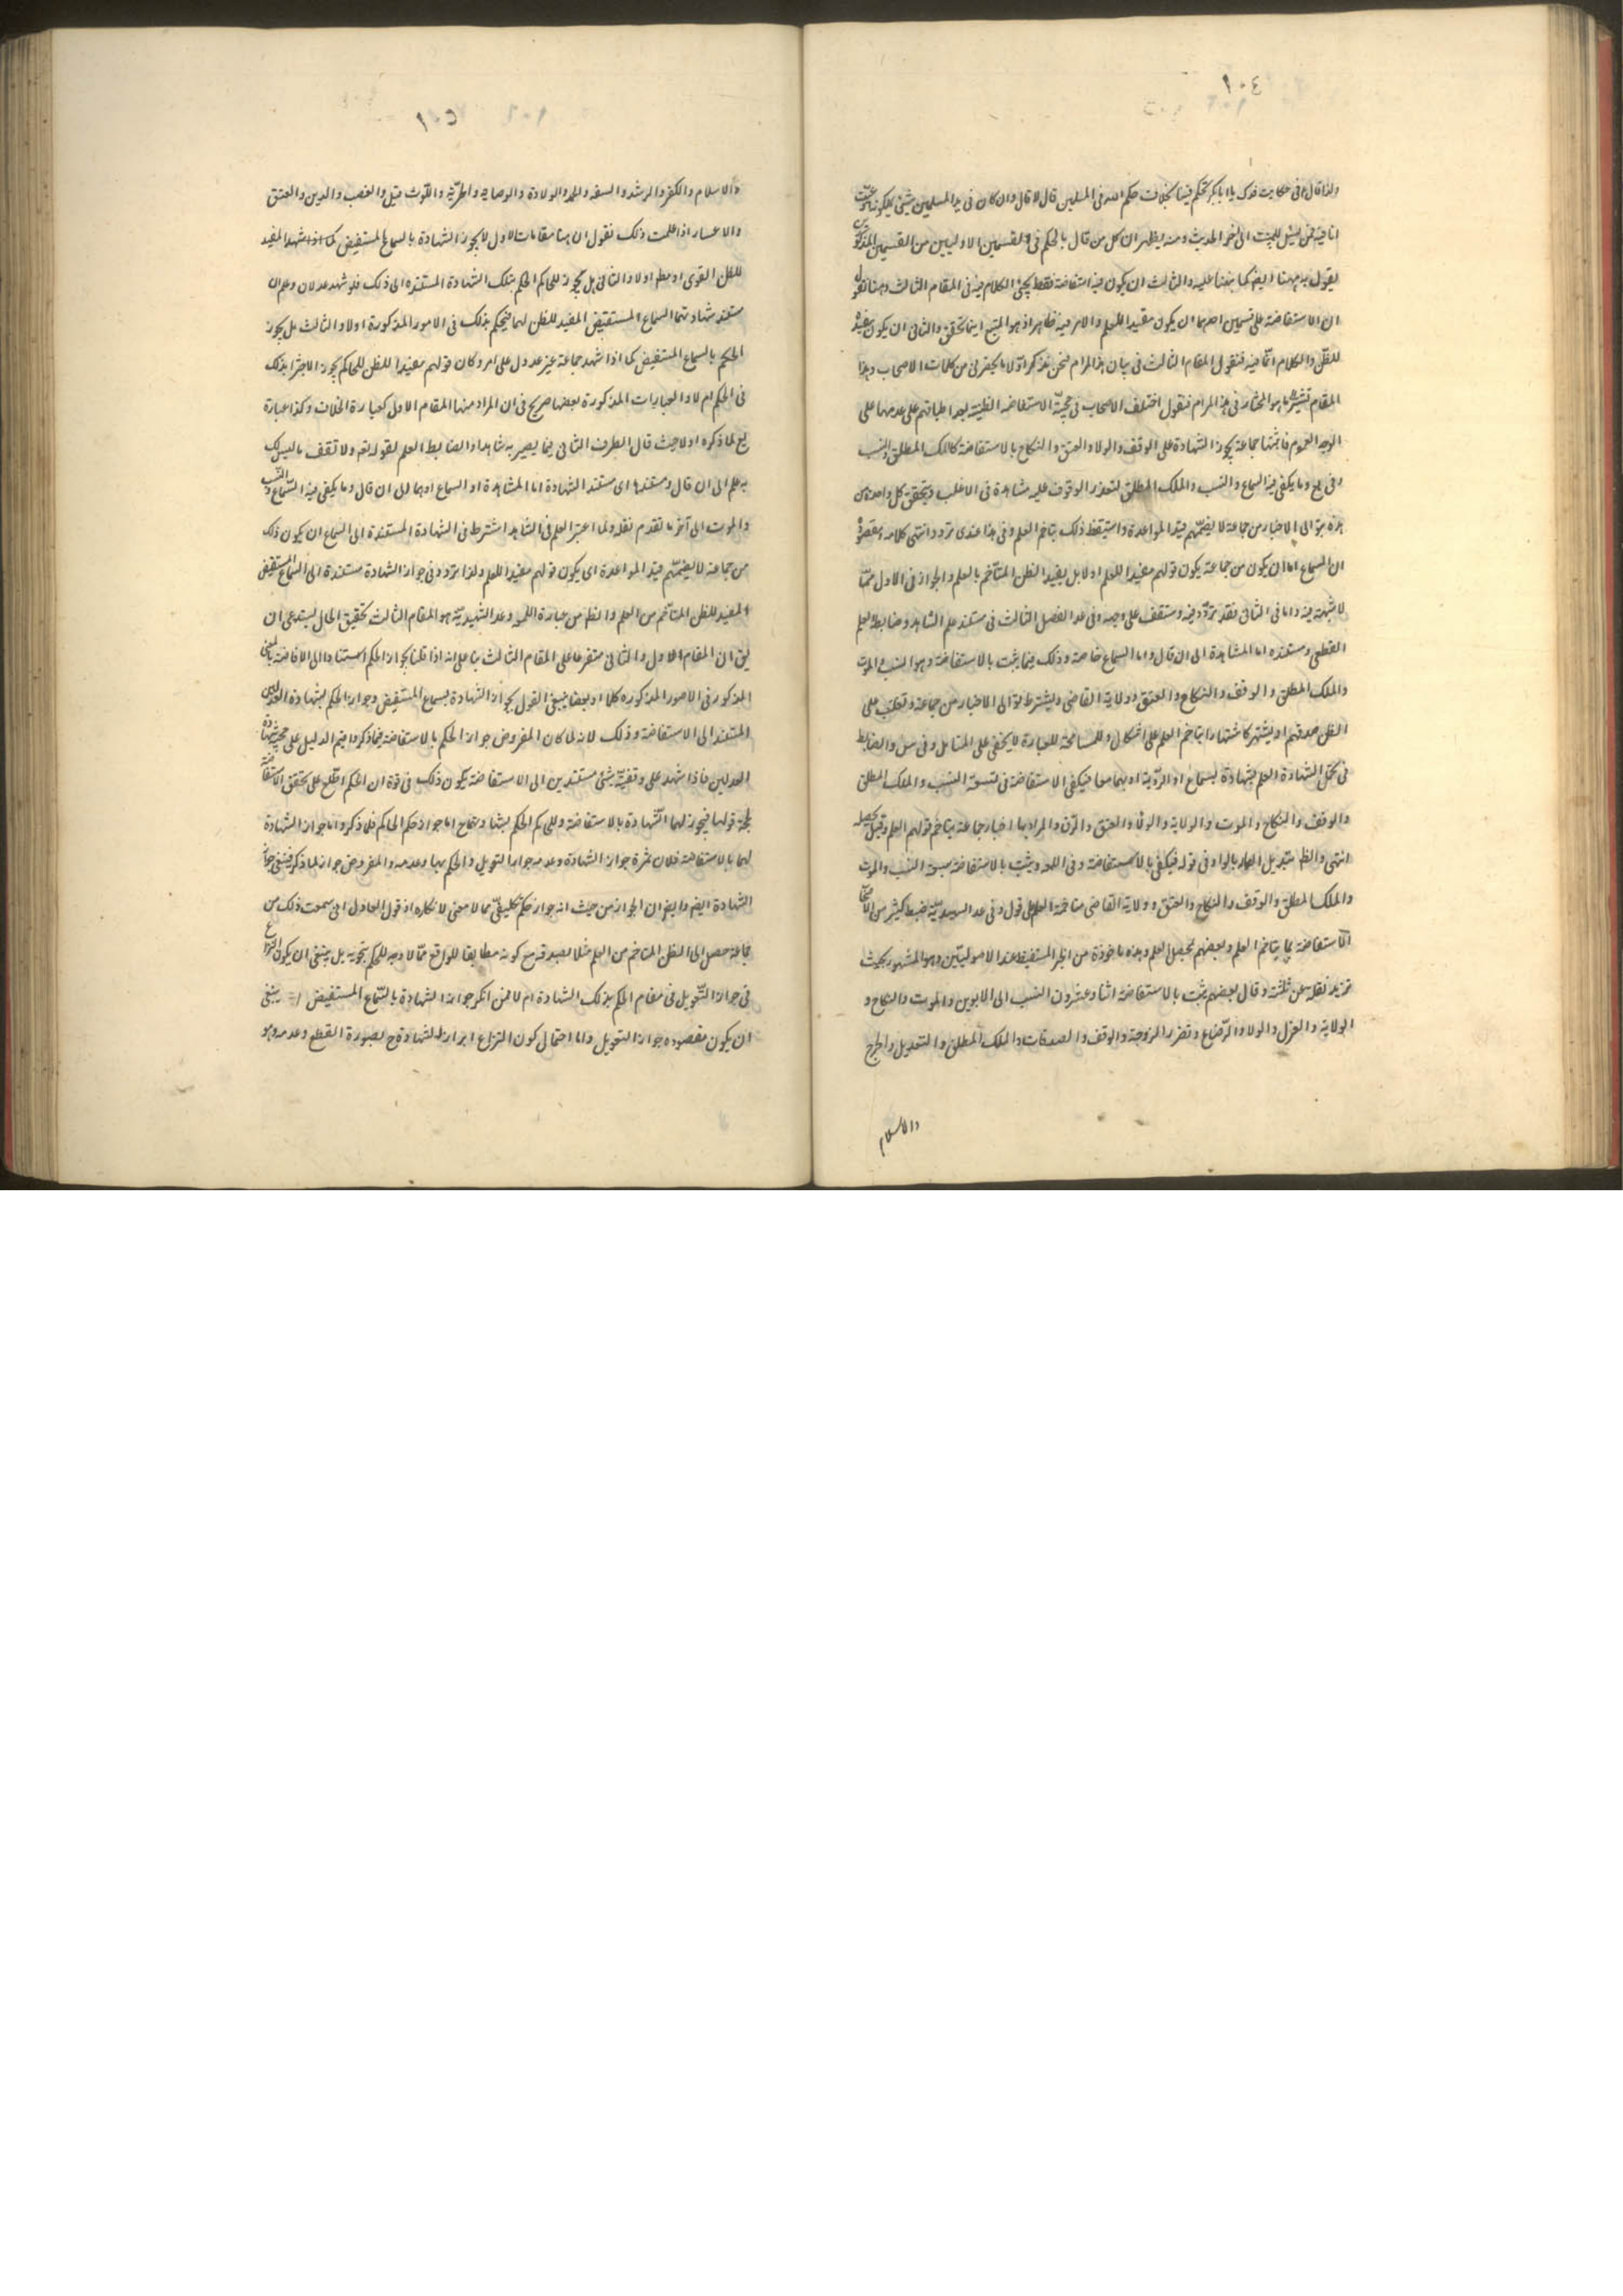 ١٠٤
ولذا قال في حكاية فدك يا ابا بكر تحكم فينا بخلاف حكم الله في المسلمين قال لا قال وان كان في يد المسلمين شيئ يملكونه
انا فيه ممن تسئل البينة الى اخر الحديث ومنه يظهر ان كل من قال بالحكم في القسمين الاوليين من القسمين المذكورين
يقول به ههنا ايضا كما نبهنا عليه والثالث ان يكون فيه استفاضة فقط يجيئ الكلام فيه في المقام الثالث وهنا نقول
ان الاستفاضة على قسمين احدهما ان يكون مفيدا للعلم والامر فيه ظاهر اذ هو المتبع اينما تحقق والثانى ان يكون مفيدة
للظن والكلام انما فيه فنقول المقام الثالث في بيان هذا المرام فنحن نذكر اولا ما يحضرنى من كلمات الاصحاب وبهذا
المقام ما هو المختار في هذا المرام فنقول اختلف الاصحاب في حجية الاستفاضة الظنية بعد اطباقهم على عدمها على
الوجه العموم فاثبتها جماعة يجوز الشهادة على الوقف والولاء والعتق والنكاح بالاستفاضة كالملك المطلق والنسب
وفي يع وما يكفى فيه السماع والنسب والملك المطلق لتعذر الوقوف عليه مشاهدة في الاغلب ويتحقق كل واحدة من
هذه بتوالى الاخبار من جماعة لا يضمهم قيد المواعدة واستيقظ ذلك بتاخم العلم وفي هذا عندى تردد انتهى كلامه ومقصوده
ان السماع اما ان يكون من جماعة يكون قولهم مفيدا للعلم او لا بل يفيد الظن المتاخم بالعلم والجواز في الاول ممّا
لا شبهة فيه واما في الثانى فقد تردد فيه وستقف على وجهه وفي عد الفصل الثالث في مستند علم الشاهد وضابطه العلم
القطعى ومستنده اما المشاهدة الى ان قال واما السماع خاصة وذلك فيما يثبت بالاستفاضة وهو النسب والموت
والملك المطلق والوقف والنكاح والعتق وولاية القاضى ويشترط توالى الاخبار من جماعة وتغلب على
الظن صدقهم او يشتهر كاشتهارا يتاخم العلم على اشكال وللمسامحة للعبارة لا يخفى على المتامل وفي س والضابط
في تحمل الشهادة العلم بشهادة بسماع او الرؤية او بهما معا فيكفى الاستفاضة في تسعة النسب والملك المطلق
والوقف والنكاح والموت والولاية والولاء والعتق والرق والمراد بها اخبار جماعة يتاخم قولهم العلم وقيل يحصله
انتهى والظ تبديل الهاء بالواو في قوله فيكفى بالاستفاضة وفي اللمعة ويثبت بالاستفاضة سبعة النسب والموت
والملك المطلق والوقف والنكاح والعتق وولاية القاضى متاخمة العلم على قول وفي عد الشهيدية ضبط كثير من الاصحاب
الاستفاضة بما يتاخم العلم وبعضهم بمحصل العلم وهذه ماخوذة من الخبر المستفيض عند الاصوليين وهو المشهور بحيث
تزيد نقلته عن ثلثة وقال بعضهم يثبت بالاستفاضة اثنا وعشرون النسب الى الابوين والموت والنكاح و
الولاية والعزل والولاء والرضاع وتضرر الزوجة والوقف والصدقات والملك المطلق والتعديل والجرح
والاسلام
١٠٥
والاسلام والكفر والرشد والسفه والحمل والولادة والوصاية والحرية واللوث قيل والغصب والدين والعتق
والاعسار اذا علمت ذلك نقول ان هنا مقامات الاول لا يجوز الشهادة بالسماع المستفيض كما اذا شهد المفيد
للظن القوى او مط او لا والثانى هل يجوز للحاكم الحكم بتلك الشهادة المستنده الى ذلك فلو شهد عدلان وعلم ان
مستند شهادتهما السماع المستفيض المفيد للظن لهما فيحكم بذلك في الامور المذكورة او لا والثالث هل يجوز
الحكم بالسماع المستفيض كما اذا شهد جماعة غير عدول على امر وكان قولهم مفيدا للظن للحاكم يجوز الاجتزا بذلك
في الحكم ام لا والعبارات المذكورة بعضها صريح في ان المراد منها المقام الاول كعبارة الخلاف وكذا عبارة
يع لما ذكره اولا حيث قال الطرف الثانى فيما يصير به شاهدا والضابط العلم لقوله تع ولا تقف ما ليس لك
به علم الى ان قال ومستندها اى مستند الشهادة اما المشاهدة او السماع او هما الى ان قال وما يكفى فيه السماع والنسب
والموت الى آخر ما تقدم نقله ولما اعتبر العلم في الشاهد اشترط في الشهادة المستندة الى السماع ان يكون ذلك
من جماعة لا يضمهم قيد المواعدة اى يكون قولهم مفيدا للعلم ولذا تردد في جواز الشهادة مستندة الى السماع المستفيض
المفيد للظن المتاخم من العلم والظ من عبارة اللمعه وعد الشهيدية هو المقام الثالث تحقيق الحال يستدعى ان
يق ان المقام الاول والثانى متفرعا على المقام الثالث بناء على انه اذا قلنا بجواز الحكم استنادا الى الافاضة بالمعنى
المذكور في الامور المذكوره كلا او بعضا ينبغى القول بجواز الشهادة بسماع المستفيض وجواز الحكم بشهادة العدلين
المستند الى الاستفاضة وذلك لانه لما كان المفروض جواز الحكم بالاستفاضة فيما ذكر واقيم الدليل على حجية شهادة
العدلين فاذا شهد على وقفية شيئ مستندين الى الاستفاضة يكون ذلك في قوة ان الحكم اطلع على تحقق الاستفاضة
لحجة قولهما فيجوز لهما الشهادة بالاستفاضة وللحاكم الحكم بشهادتهما اما جواز حكم الحاكم فلما ذكر واما جواز الشهادة
لهما بالاستفاضة فلان ثمرة جواز الشهادة وعدمه جواز التعويل والحكم بها وعدمه والمفروض جوازه لما ذكر فينبغى جواز
الشهادة ايضا وايضا ان الجواز من حيث انه جواز حكم تكليفى مما لا معنى لانكاره اذ قول العادل انى سمعت ذلك من
جماعة حصل الى الظن المتاخم من العلم مثلا بصدقه مع كونه مطابقا للواقع ممّا لا وجه للحكم بتحريمه بل ينبغى ان يكون النزاع
في جواز التعويل في مقام الحكم بذلك الشهادة ام لا فمن انكر جواز الشهادة بالسماع المستفيض ينبغى
ان يكون مقصوده جواز التعويل واما احتمال كون النزاع ابراز الشهادة ح بصورة القطع وعدمه وهو